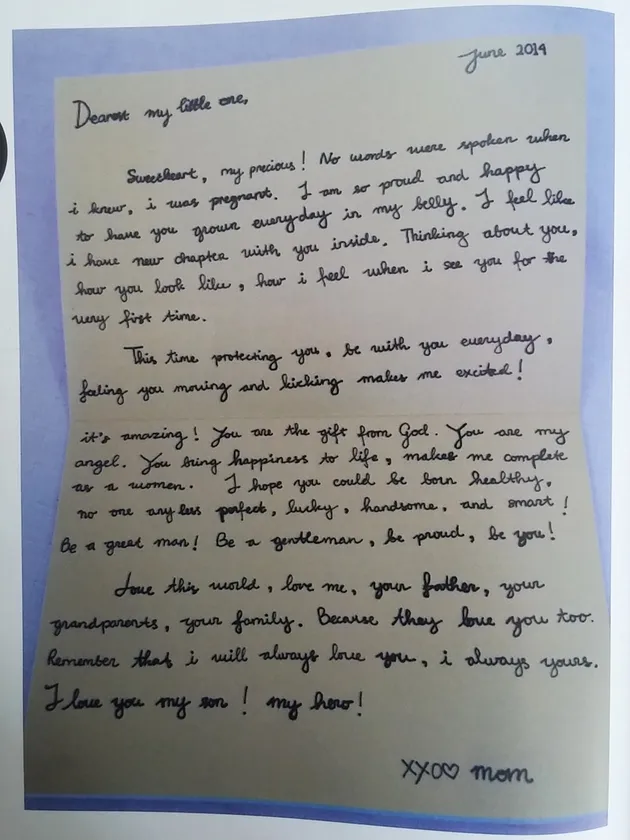 June 2014
Dearest my little one,
Sweetheart, my precious! No words were spoken when
i knew, i was pregnant. I am so proud and happy
to have you grown everyday in my belly. I feel like
i have new chapter with you inside. Thinking about you,
how you look like, how i feel when i see you for the
very first time.
This time protecting you, be with you everyday,
feeling you moving and kicking makes me excited!
it's amazing! You are the gift from God. You are my
angel. You bring happiness to life, makes me complete
as a women. I hope you could be born healthy,
no one any less perfect, lucky, handsome, and smart!
Be a great man! Be a gentleman, be proud, be you!
Love this world, love me, your father, your
grandparents, your family. Because they love you too.
Remember that i will always love you, i always yours.
I love you my son! my hero!
XXO♡ mom